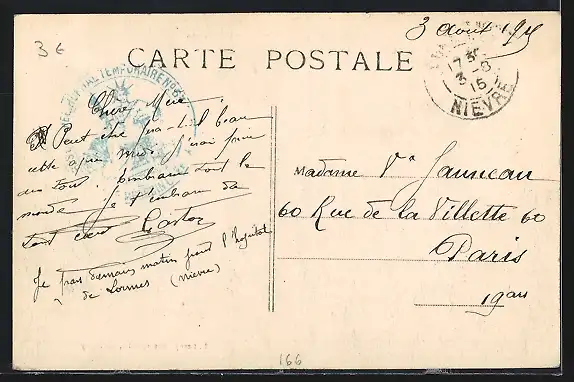 3 €
3 août 1915
CARTE POSTALE
17 35
3 - 8
15
NIEVRE
HOPITAL TEMPORAIRE N°
Chère Mère
Peut être fera-t-il beau
cette après midi j'irai faire
un tour. Embrasse tout le
monde. Je t'embrasse de
tout cœur Gaston
Je pars demain matin pour l'hopital
de Lormes (Nièvre)
Madame Vve
60 Rue de la Villette 60
Paris
19 ars
166